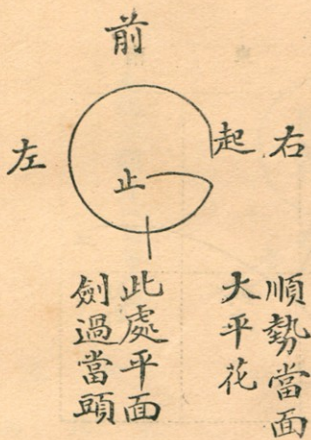 前
右
起
左
止
順勢當面
大平花
此處平面
劍過當頭